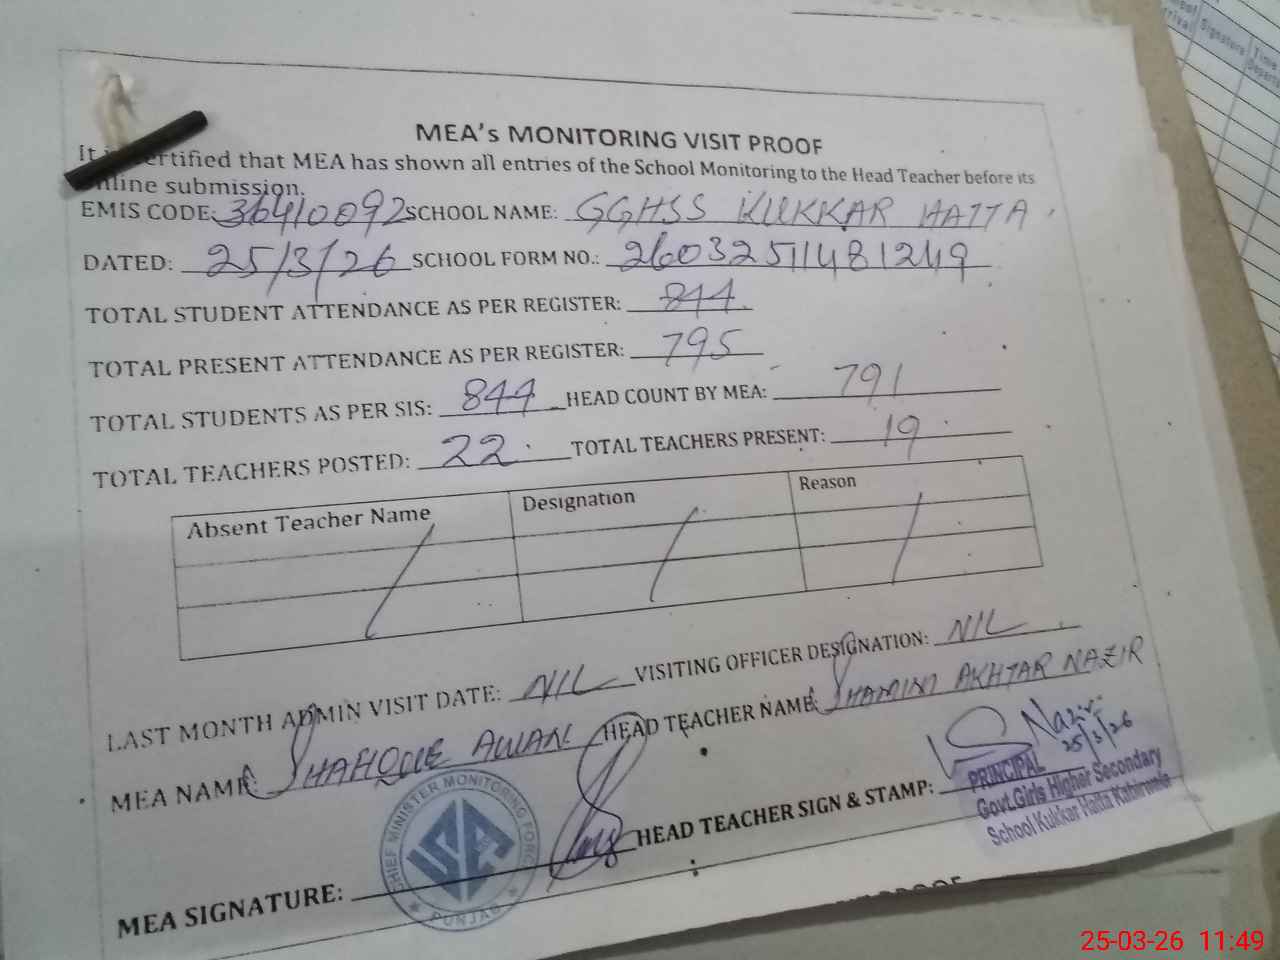 MEA's MONITORING VISIT PROOF
It is certified that MEA has shown all entries of the School Monitoring to the Head Teacher before its
online submission.
EMIS CODE: 36410092 SCHOOL NAME: GGHSS KUKKAR HATTA
DATED: 25/3/26 SCHOOL FORM NO.: 26032511481249
TOTAL STUDENT ATTENDANCE AS PER REGISTER: 844
TOTAL PRESENT ATTENDANCE AS PER REGISTER: 795
TOTAL STUDENTS AS PER SIS: 844 HEAD COUNT BY MEA: 791
TOTAL TEACHERS POSTED: 22 TOTAL TEACHERS PRESENT: 19
Absent Teacher Name Designation Reason
LAST MONTH ADMIN VISIT DATE: NIL VISITING OFFICER DESIGNATION: NIL
MEA NAME: SHAFIQUE AWAN HEAD TEACHER NAME: SHAMIM AKHTAR NAZIR
MEA SIGNATURE: HEAD TEACHER SIGN & STAMP:
S Nazir
25/3/26
PRINCIPAL
Govt.Girls Higher Secondary
School Kukkar Hatta Kabirwala
CHIEF MINISTER MONITORING FORCE
PUNJAB
Signature
Time
25-03-26 11:49